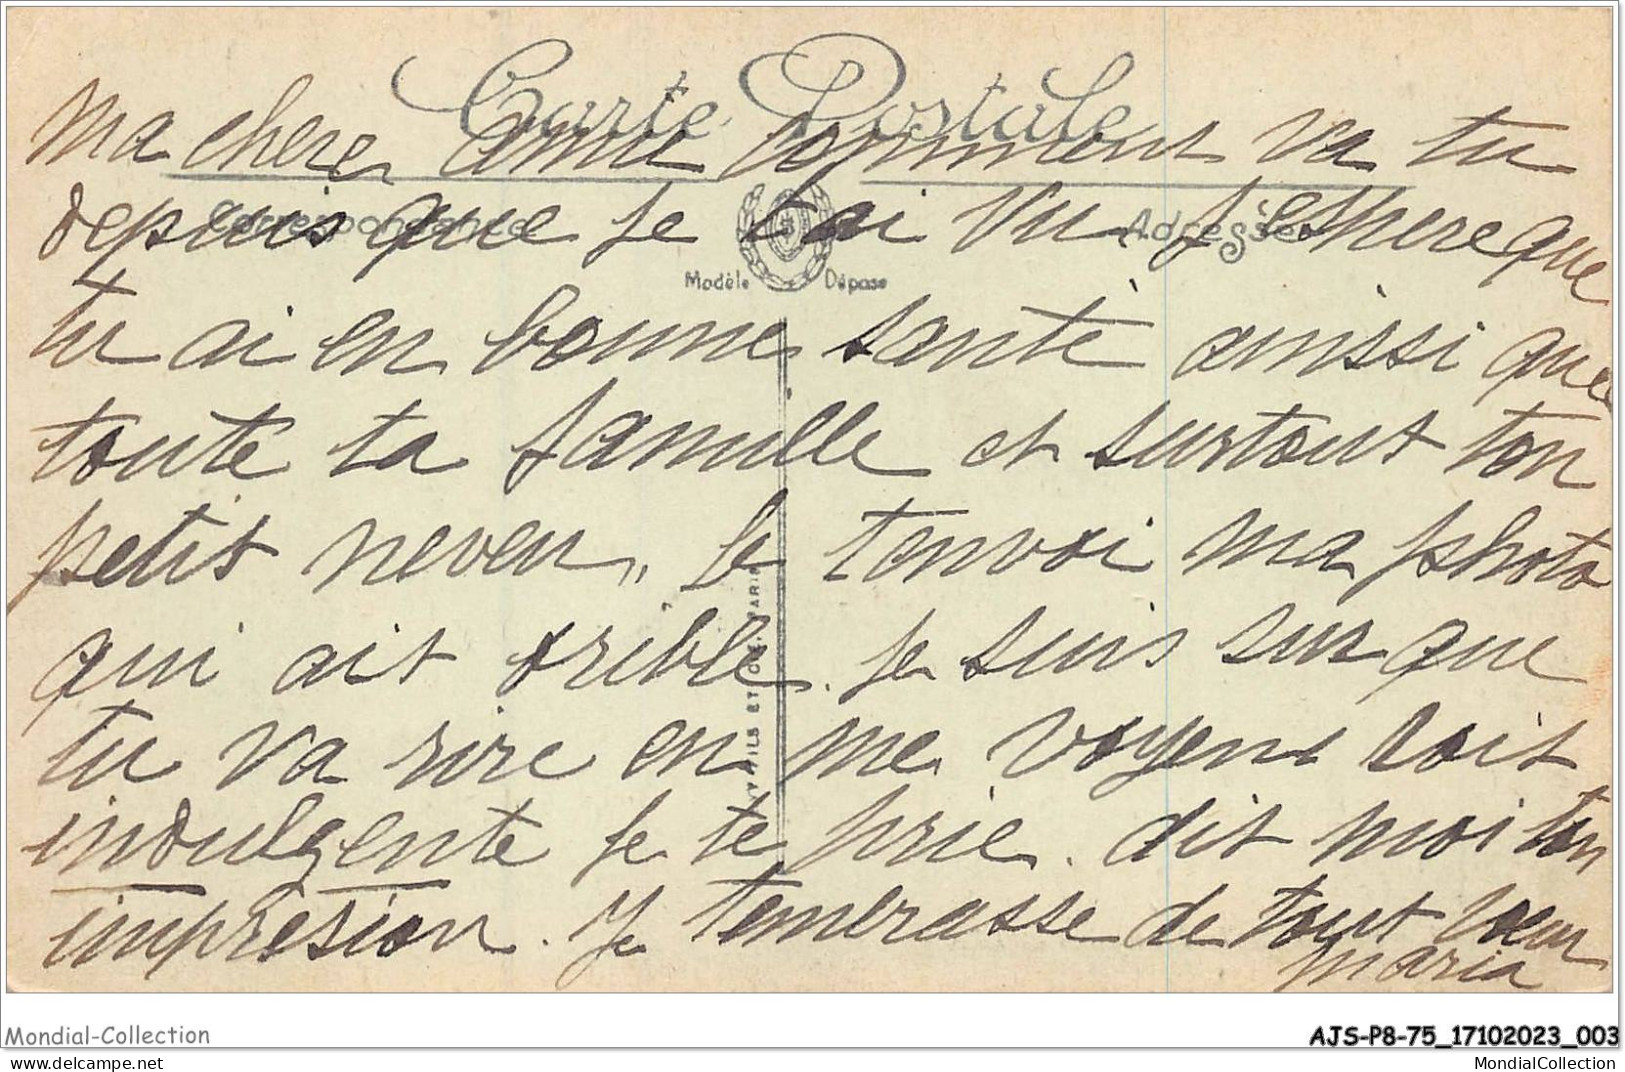 Carte Postale
Ma chere amie comment va tu
Correspondance
Adresse
depuis que je tai vu j'eshere que
Modèle Déposé
tu ai en bonne santé ainssi que
toute ta famille et surtout ton
petit neveu,, Je tenvoi ma photo
qui ait orible. Je suis sur que
tu va rire en me voyent soit
indulgente Je te prie. dit moi ton
impresion. Je tembrasse de tout coeur
Maria
FILS ET CIE. PARIS
Mondial-Collection
AJS-P8-75_17102023_003
MondialCollection